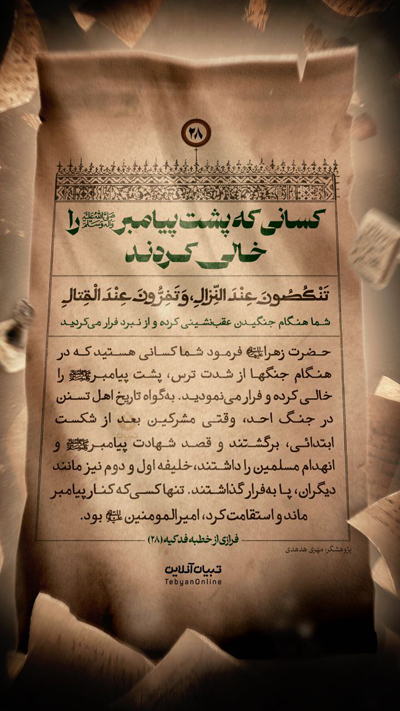 ۲۸
کسانی که پشت پیامبر ﷺ را
خالی کردند
تَنْکُصُونَ عِنْدَ النِّزالِ، وَ تَفِرُّونَ عِنْدَ الْقِتالِ
شما هنگام جنگیدن عقب‌نشینی کرده و از نبرد فرار می‌کردید
حضرت زهرا فرمود شما کسانی هستید که در
هنگام جنگها از شدت ترس، پشت پیامبر ﷺ را
خالی کرده و فرار می‌نمودید. به‌گواه تاریخ اهل تسنن
در جنگ احد، وقتی مشرکین بعد از شکست
ابتدائی، برگشتند و قصد شهادت پیامبر ﷺ و
انهدام مسلمین را داشتند، خلیفه اول و دوم نیز مانند
دیگران، پا به فرار گذاشتند. تنها کسی‌که کنار پیامبر
ماند و استقامت کرد، امیرالمومنین بود.
فرازی از خطبه فدکیه (۲۸)
پژوهشگر: مهری هدهدی
تبیان‌آنلاین
TebyanOnline